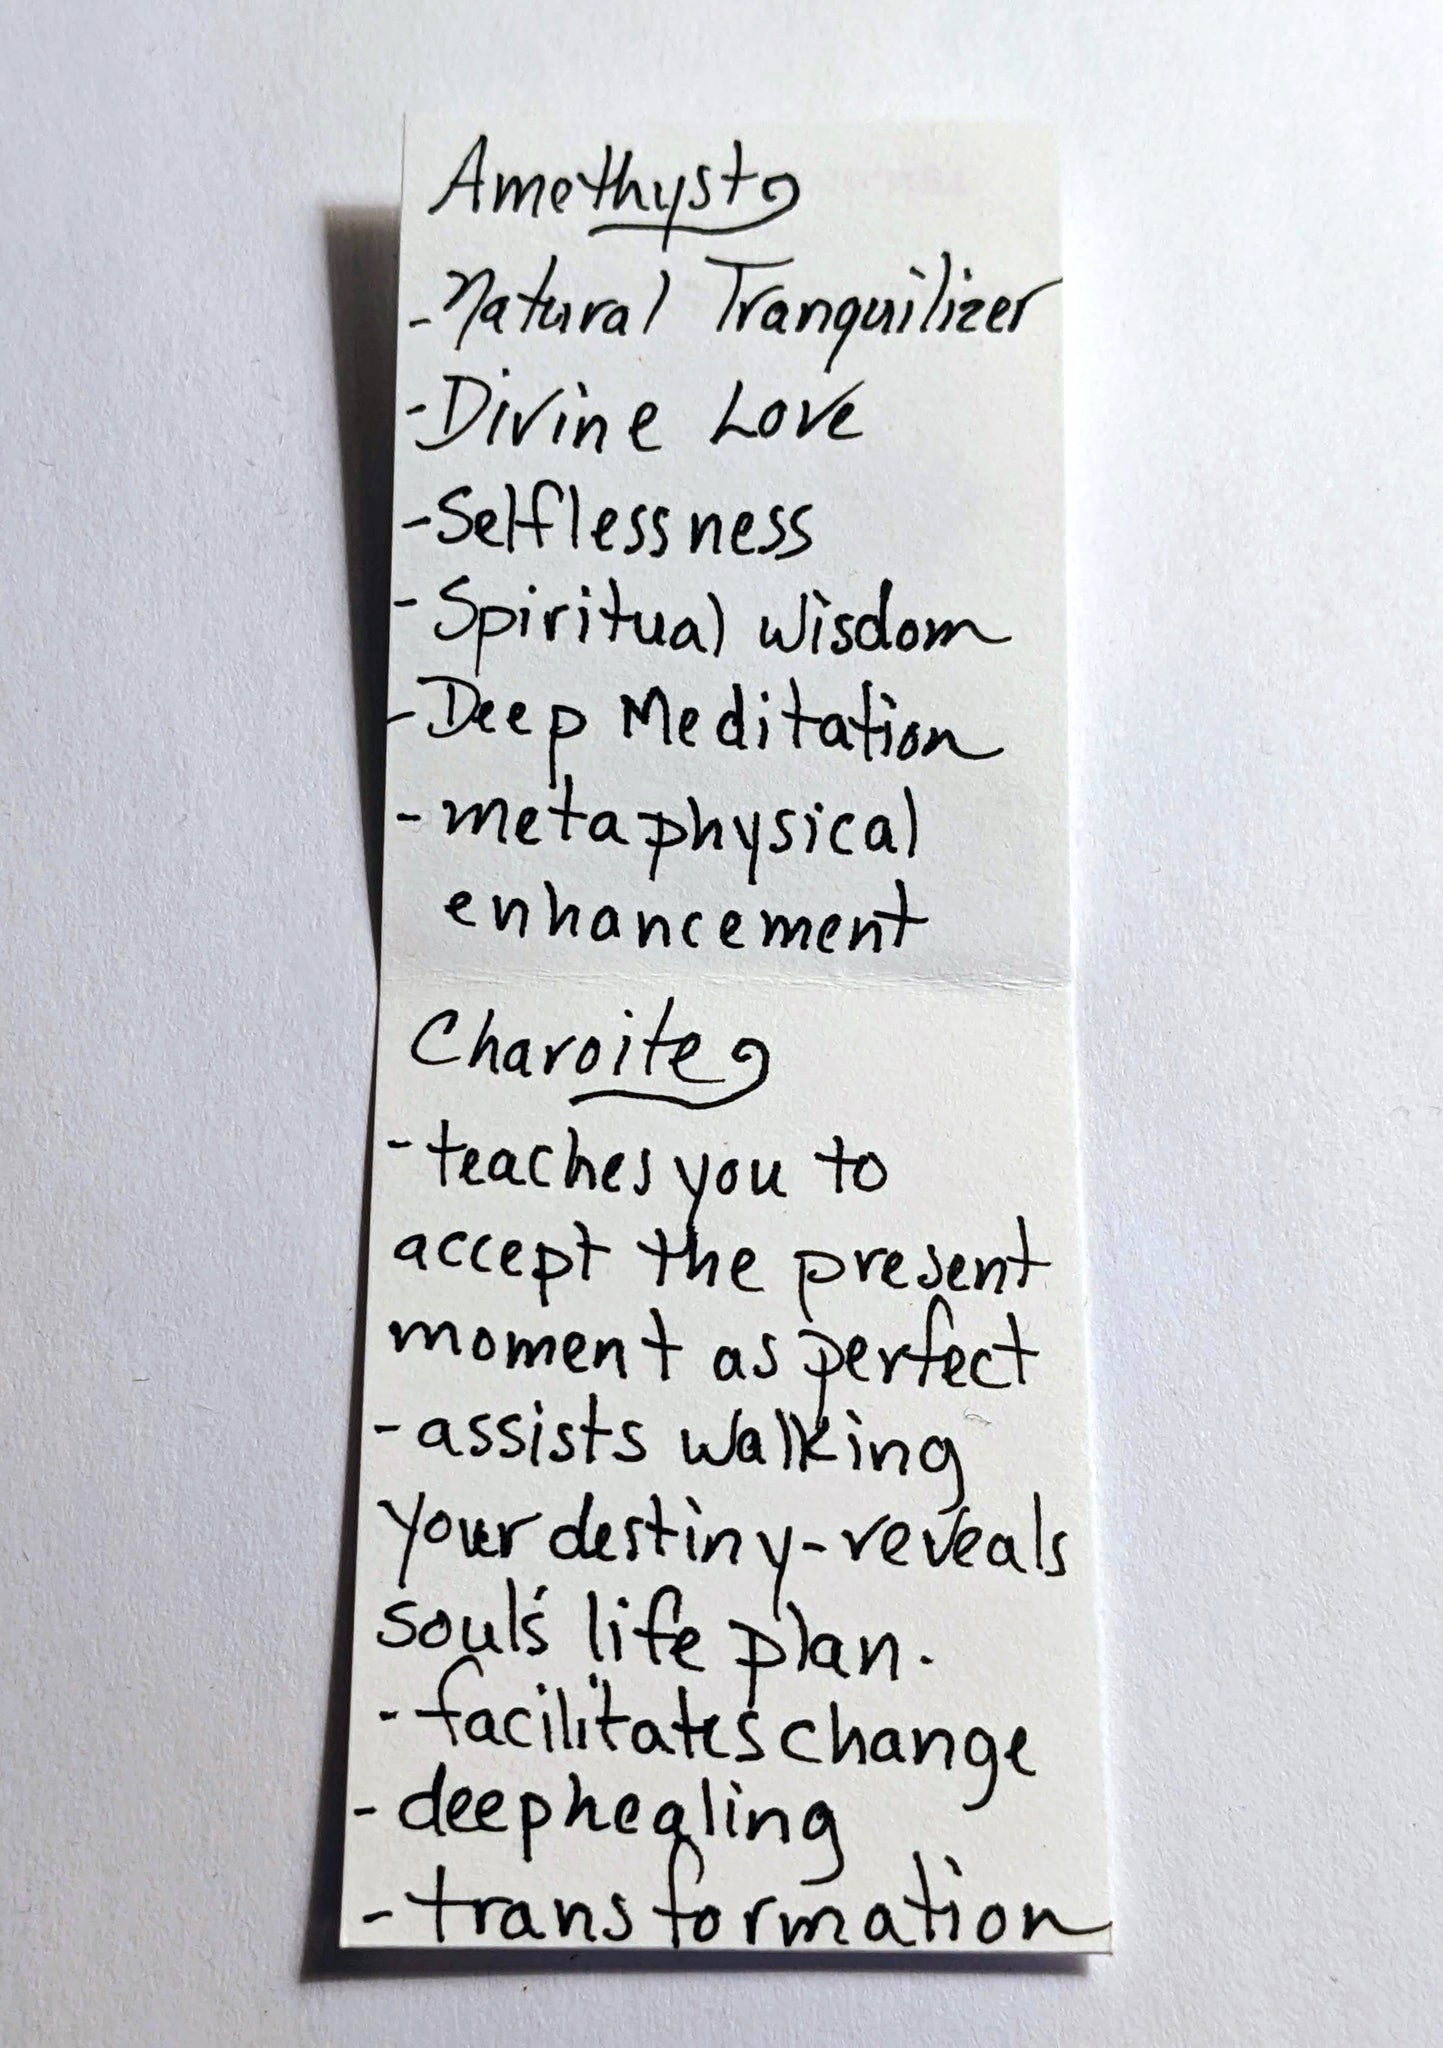 Amethyst
- Natural Tranquilizer
- Divine Love
- Selflessness
- Spiritual Wisdom
- Deep Meditation
- metaphysical
enhancement
Charoite
- teaches you to
accept the present
moment as perfect
- assists walking
your destiny - reveals
soul's life plan.
- facilitates change
- deep healing
- transformation